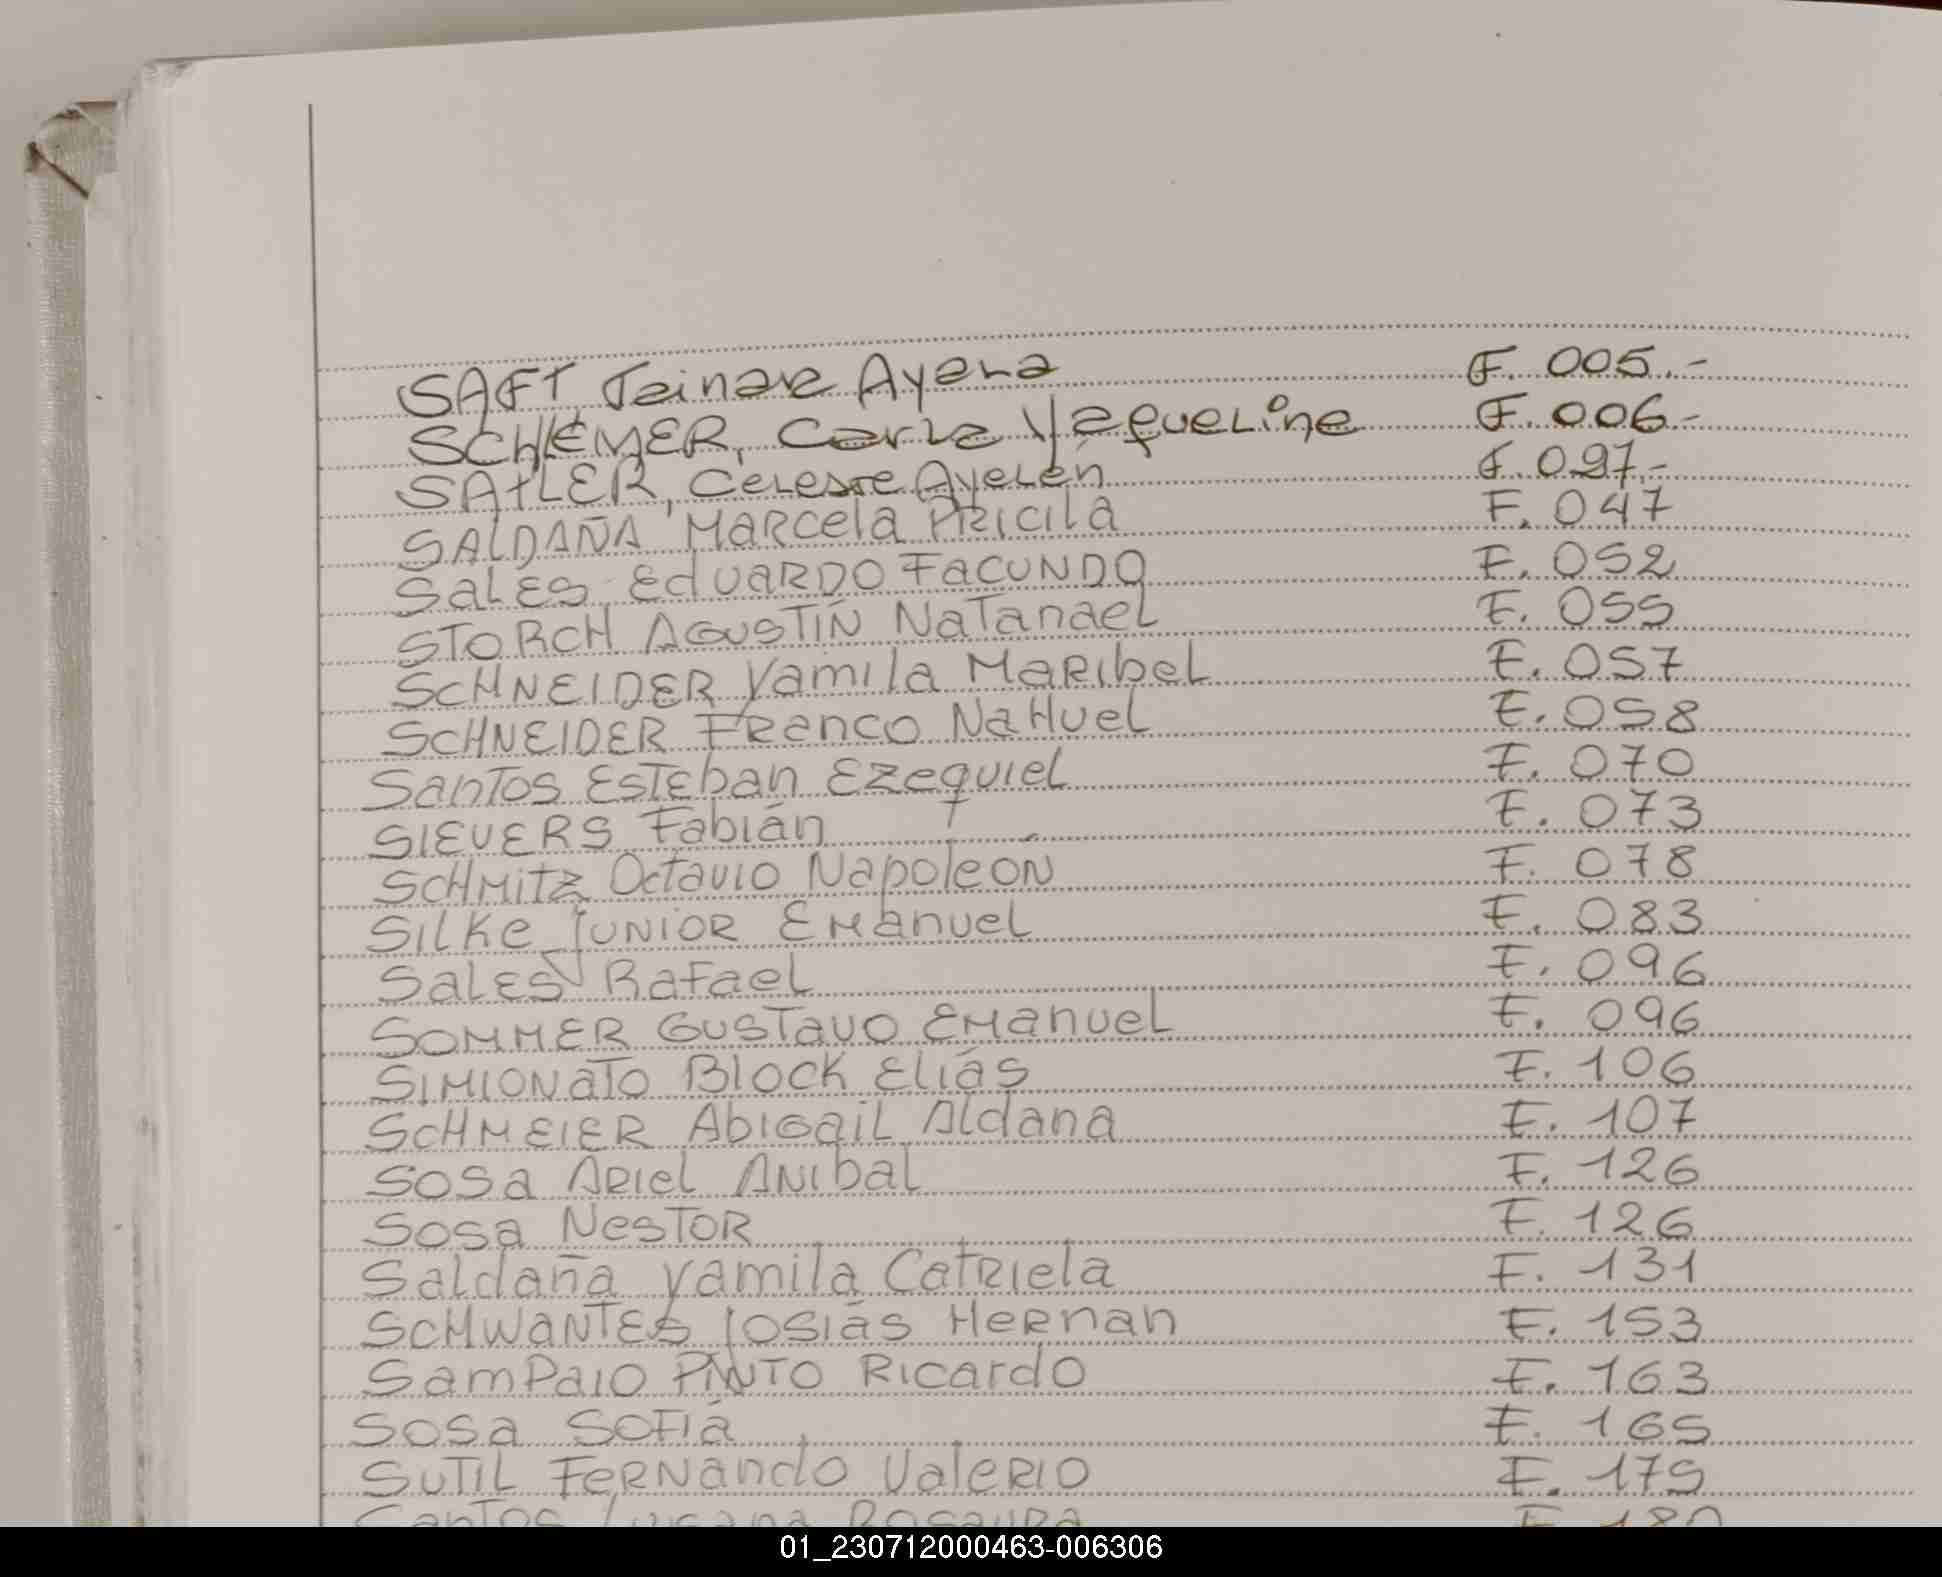 SAFT Tainar Ayana F. 005.-
SCHEMER, Carla Yaqueline F. 006-
SATLER, Celeste Ayelén F. 027.-
SALDAÑA Marcela PRICILA F. 047
SALES EDUARDO FACUNDO F. 052
STORCH AGUSTÍN Natanael F. 055
SCHNEIDER Yamila Maribel F. 057
SCHNEIDER Franco Nahuel F. 058
Santos Esteban Ezequiel F. 070
SIEVERS Fabián F. 073
SCHMITZ Octavio Napoleón F. 078
SILKE JUNIOR Emanuel F. 083
Sales Rafael F. 096
SOMMER Gustavo Emanuel F. 096
SIMIONATO Block Elías F. 106
SCHMEIER Abigail Aldana F. 107
SOSA Ariel Anibal F. 126
Sosa Nestor F. 126
Saldaña Yamila Catriela F. 131
SCHWANTES Josiás Hernan F. 153
Sampaio PINTO Ricardo F. 163
Sosa Sofiá F. 165
SUTIL Fernando Valerio F. 175
Santos F. 180
01_230712000463-006306